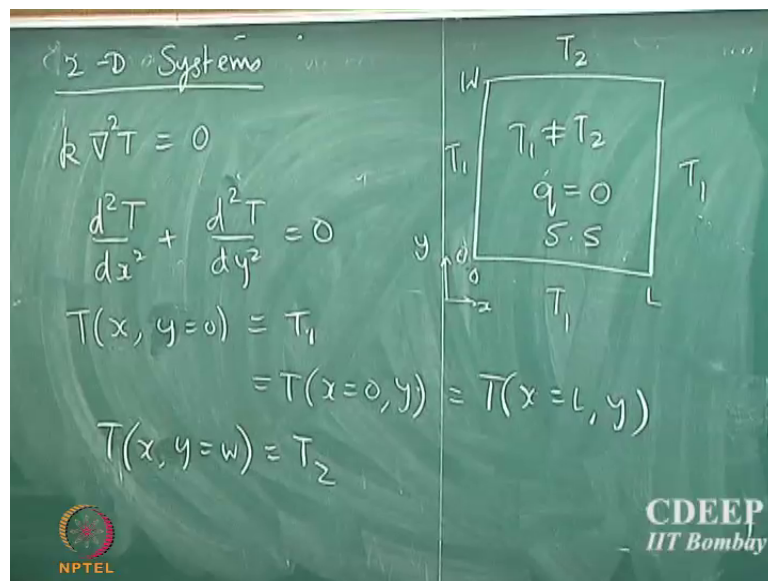 2-D Systems
k ∇²T = 0
d²T/dx² + d²T/dy² = 0
T(x, y=0) = T₁
= T(x=0, y) = T(x=L, y)
T(x, y=W) = T₂
T₂
W
T₁
T₁ ≠ T₂
q̇ = 0
S.S
T₁
y
0
0
x
T₁
L
NPTEL
CDEEP
IIT Bombay